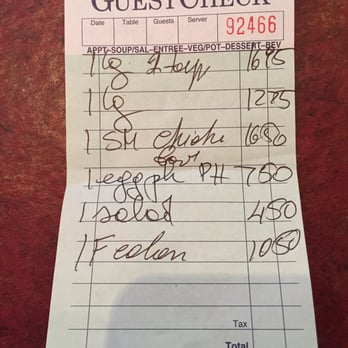 GUEST CHECK
Date Table Guests Server 92466
APPT-SOUP/SAL-ENTREE-VEG/POT-DESSERT-BEV
1 lg 1695
1 lg 1295
1 SM chicke 1650
1 eggpl PH 750
1 salad 450
1 1050
Tax
Total